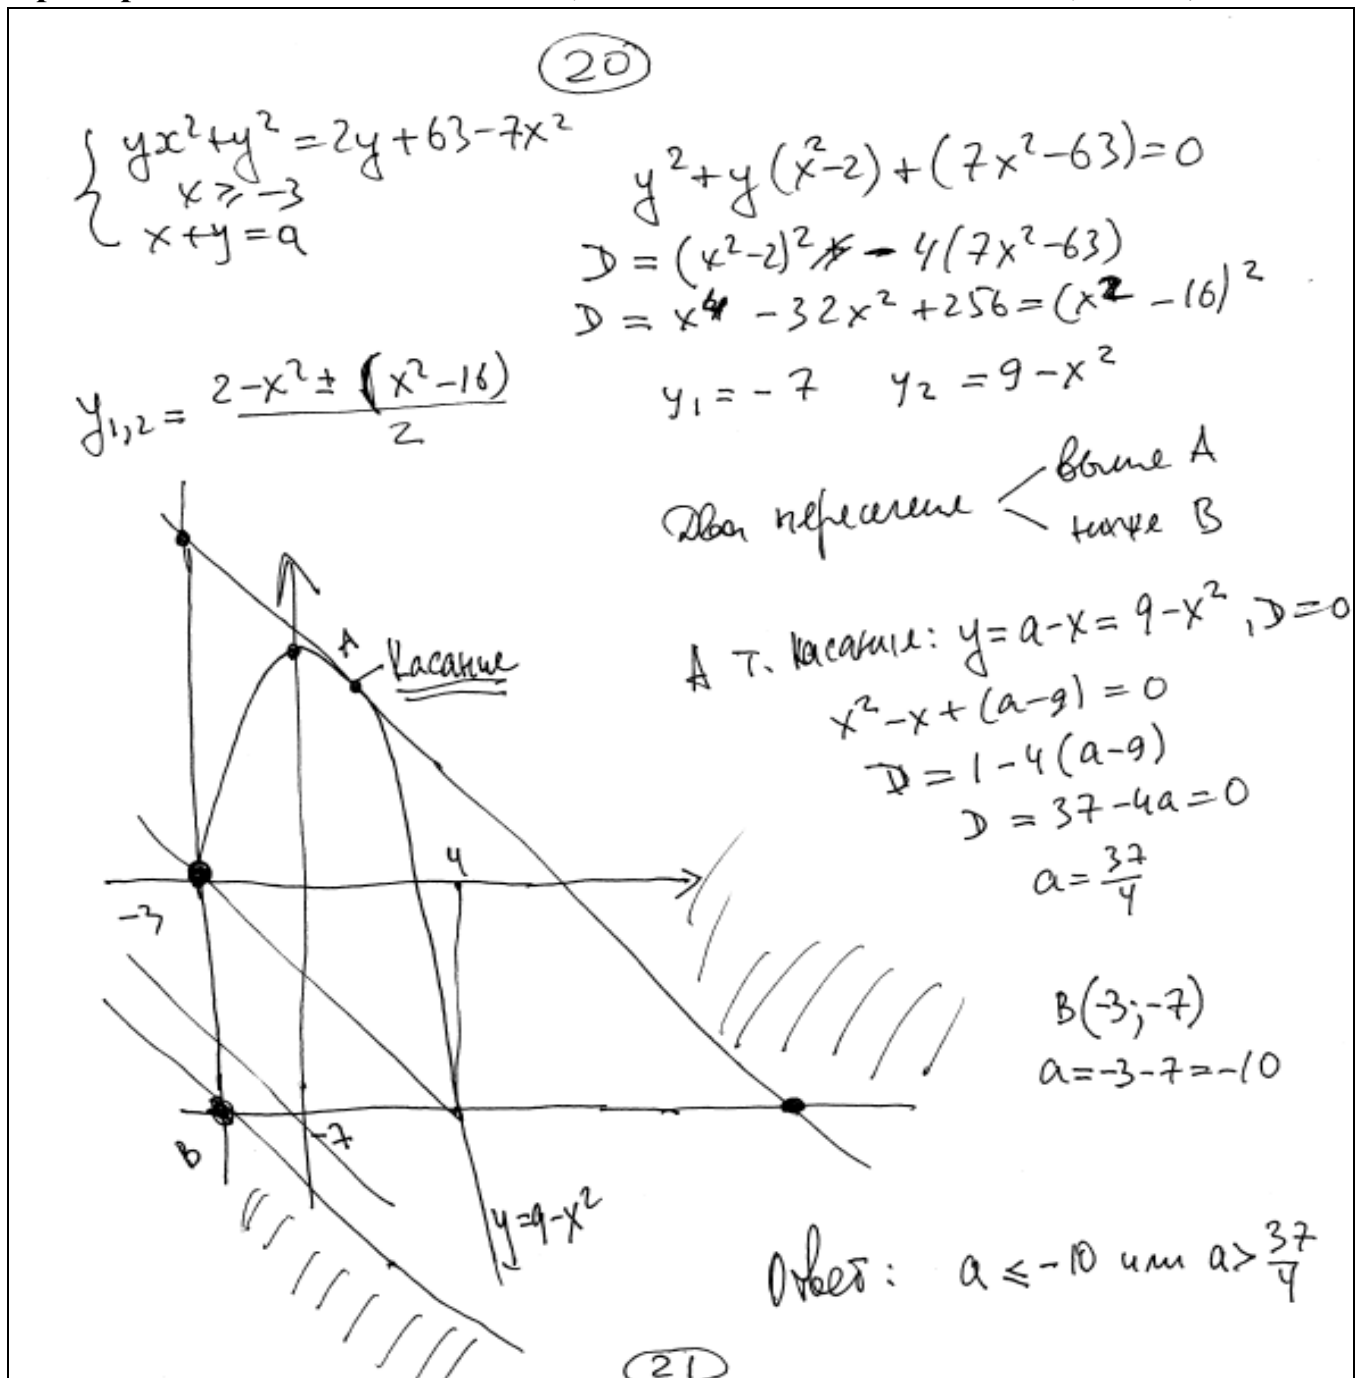 20
yx²+y²=2y+63-7x²
x ≥ -3
x+y=a
y²+y(x²-2)+(7x²-63)=0
D=(x²-2)² - 4(7x²-63)
D=x⁴-32x²+256=(x²-16)²
y₁,₂ = (2-x² ± (x²-16))/2
y₁=-7 y₂=9-x²
Два пересечения
выше A
ниже B
A т. касания: y=a-x=9-x², D=0
x²-x+(a-9)=0
D=1-4(a-9)
D=37-4a=0
a=37/4
A
Касание
4
-3
B(-3;-7)
a=-3-7=-10
B
-7
y=9-x²
Ответ: a ≤ -10 или a > 37/4
21